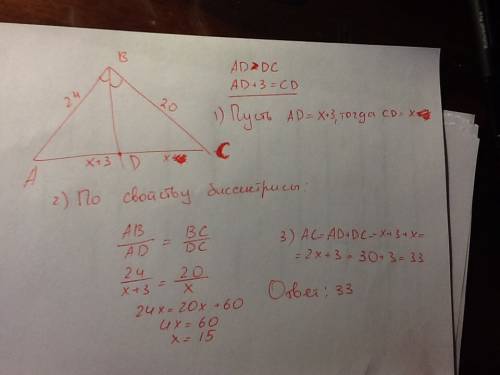 B
AD > DC
AD + 3 = CD
24
20
1) Пусть AD = x+3, тогда CD = x
A
x+3
D
x
C
2) По свойству биссектрисы:
AB/AD = BC/DC
24/x+3 = 20/x
24x = 20x + 60
4x = 60
x = 15
3) AC = AD + DC = x+3+x =
= 2x + 3 = 30+3 = 33
Ответ: 33